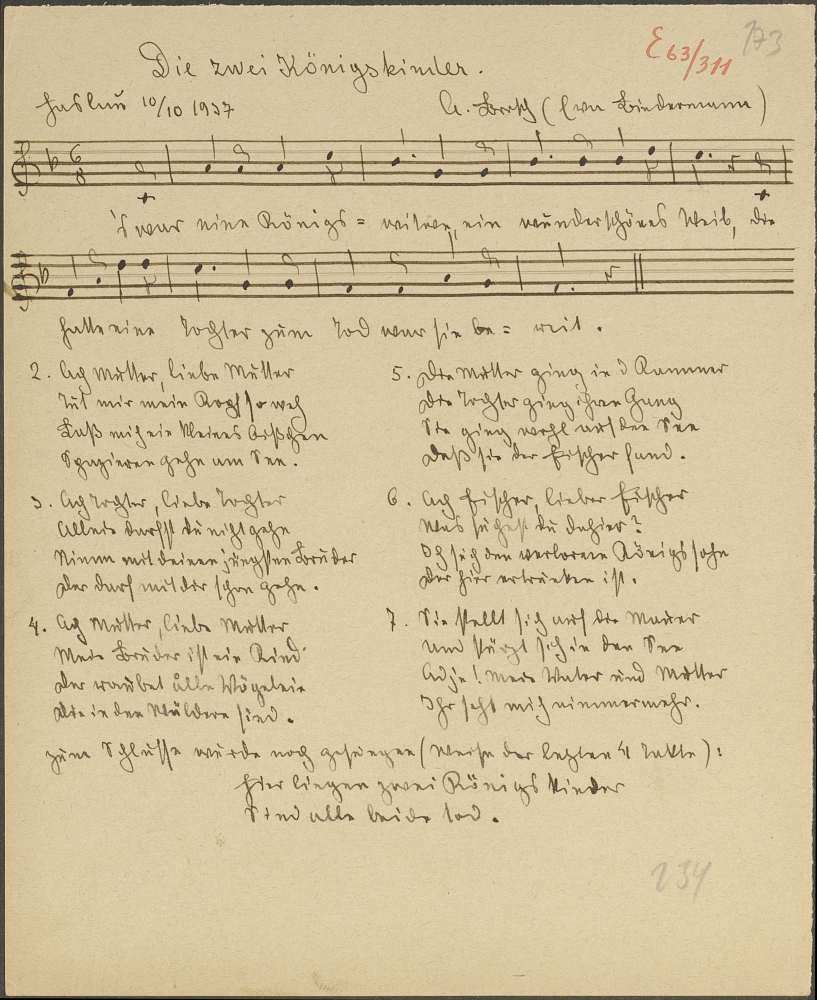 E 63/311 173
Die zwei Königskinder.
Haslau 10/10 1937 A. Bersch (Eva Biedermann)
6
8
's war eine Königs=witwe, ein wunderschönes Weib, die
hatte eine Tochter zum Tod war sie be=reit.
2. Ach Mutter, liebe Mutter
Tut mir mein Kopf so weh
Laß mich ein kleines bißchen
Spazieren gehn am See.
3. Ach Tochter, liebe Tochter
Allein darfst du nicht gehn
Nimm mit deinen jüngsten Bruder
Der darf mit dir schon gehn.
4. Ach Mutter, liebe Mutter
Mein Bruder ist ein Kind
Der raubet alle Vögelein
Die in den Wäldern sind.
5. Die Mutter ging in d Kammer
Die Tochter ging ihren Gang
Sie ging wohl auf den See
Daß sie der Fischer fand.
6. Ach Fischer, lieber Fischer
Was suchest du dahier?
Ich such den verlornen Königssohn
Der hier ertrunken ist.
7. Sie stellt sich auf die Mauer
Und stürzt sich in den See
Adje! Mein Vater und Mutter
Ihr seht mich nimmermehr.
Zum Schlusse wurde noch gesungen (Weise der letzten 4 Takte):
Hier liegen zwei Königs Kinder
Sind alle beide tod.
234